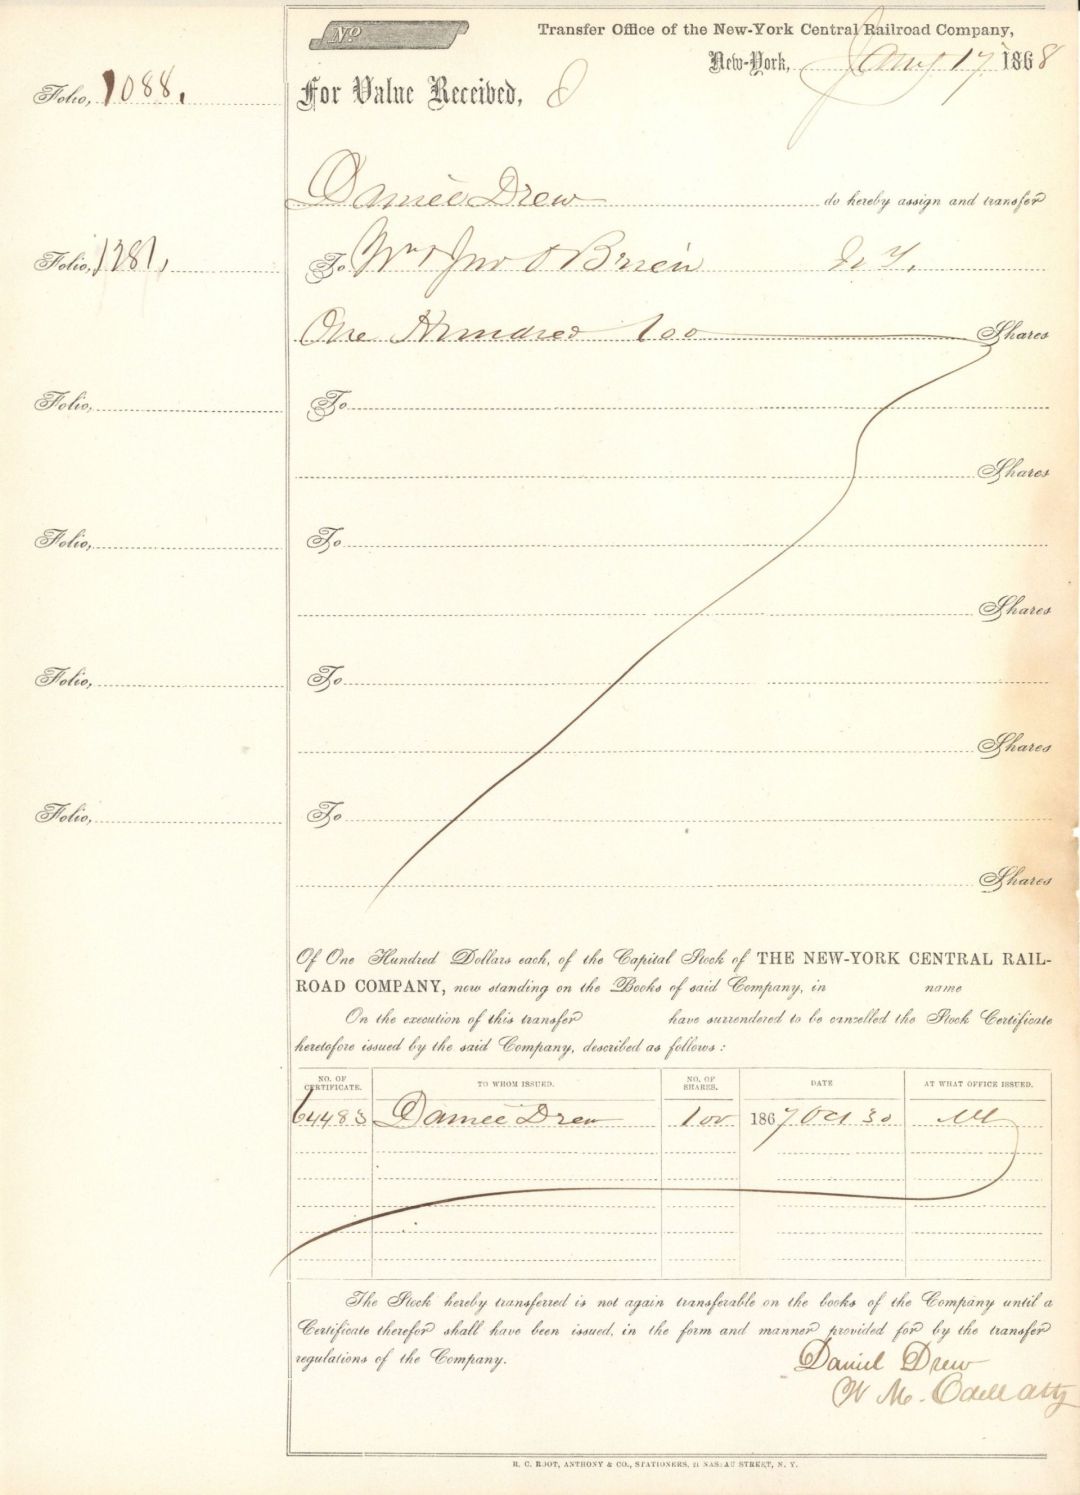 No
Transfer Office of the New-York Central Railroad Company,
New-York, Jany 17 1868
Folio, 1088.
For Value Received, I
Daniel Drew do hereby assign and transfer
Folio, 1281,
To Wm & Jno O Brien N Y.
One Hundred 100 Shares
Folio, To
Shares
Folio, To
Shares
Folio, To
Shares
Folio, To
Shares
Of One Hundred Dollars each, of the Capital Stock of THE NEW-YORK CENTRAL RAIL-
ROAD COMPANY, now standing on the Books of said Company, in name
On the execution of this transfer have surrendered to be cancelled the Stock Certificate
heretofore issued by the said Company, described as follows:
NO. OF CERTIFICATE. TO WHOM ISSUED. NO. OF SHARES. DATE AT WHAT OFFICE ISSUED.
64483 Daniel Drew 100 1867 Oct 30
The Stock hereby transferred is not again transferable on the books of the Company until a
Certificate therefor shall have been issued, in the form and manner provided for by the transfer
regulations of the Company.
Daniel Drew
W M. Odell Atty
R. C. ROOT, ANTHONY & CO., STATIONERS, 21 NASSAU STREET, N. Y.